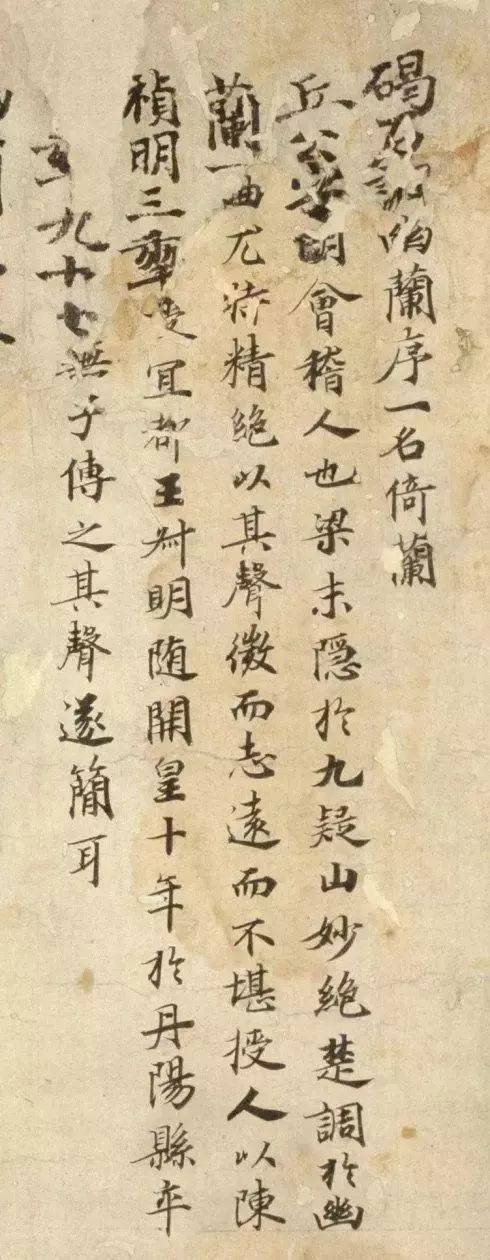 碣石調幽蘭序一名倚蘭
丘公字明會稽人也梁末隱於九疑山妙絕楚調於幽
蘭一曲尤特精絕以其聲微而志遠而不堪授人以陳
禎明三年授宜都王叔明随開皇十年於丹陽縣卒
年九十七無子傳之其聲遂簡耳